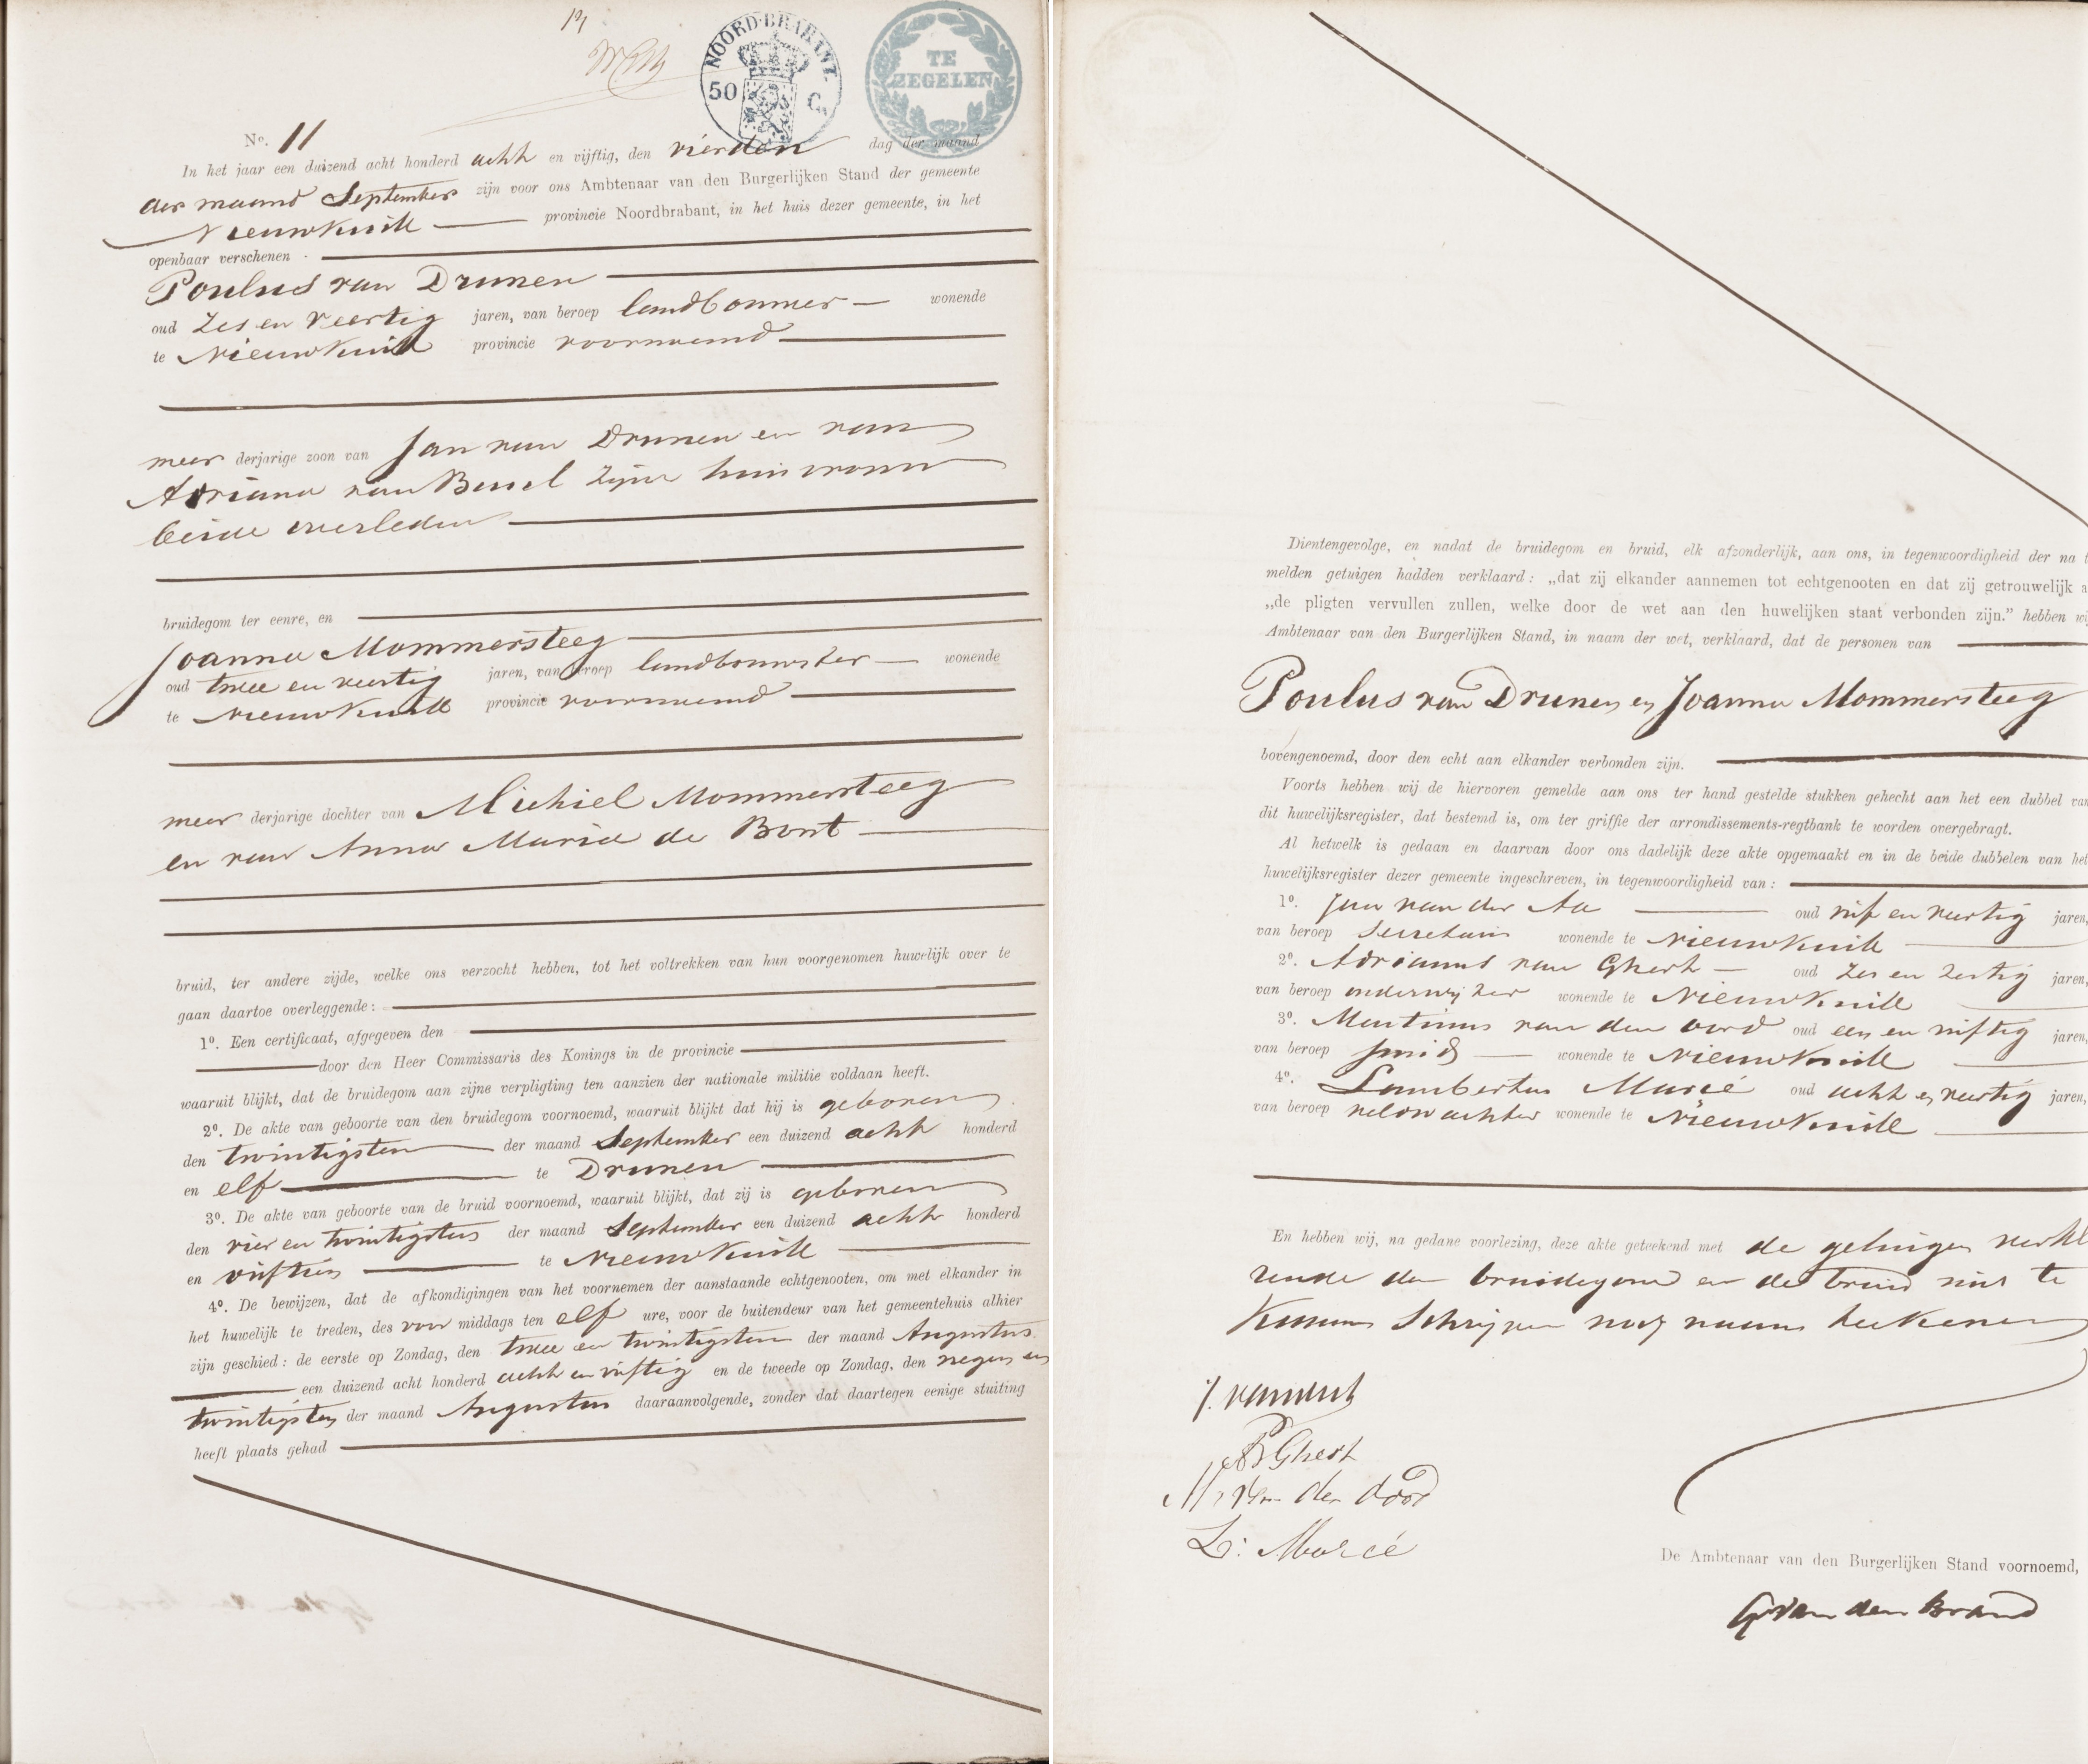 14
NOORD-BRABANT.
50 C.
TE
ZEGELEN
No. 11
In het jaar een duizend acht honderd acht en vijftig, den vierden dag der maand
der maand September zijn voor ons Ambtenaar van den Burgerlijken Stand der gemeente
Nieuwkuik provincie Noordbrabant, in het huis dezer gemeente, in het
openbaar verschenen
Poulus van Drunen
oud Zes en Veertig jaren, van beroep landbouwer wonende
te Nieuwkuik provincie voornoemd
meer derjarige zoon van Jan van Drunen en van
Adriana van Bussel Zijne huisvrouw
beide overleden
bruidegom ter eenre, en
Joanna Mommersteeg
oud twee en veertig jaren, van beroep landbouwster wonende
te Nieuwkuik provincie voornoemd
meer derjarige dochter van Michiel Mommersteeg
en van Anna Maria de Bont
bruid, ter andere zijde, welke ons verzocht hebben, tot het voltrekken van hun voorgenomen huwelijk over te
gaan daartoe overleggende:
1º. Een certificaat, afgegeven den
door den Heer Commissaris des Konings in de provincie
waaruit blijkt, dat de bruidegom aan zijne verpligting ten aanzien der nationale militie voldaan heeft.
2º. De akte van geboorte van den bruidegom voornoemd, waaruit blijkt dat hij is geboren
den twintigsten der maand September een duizend acht honderd
en elf te Drunen
3º. De akte van geboorte van de bruid voornoemd, waaruit blijkt, dat zij is geboren
den vier en twintigsten der maand September een duizend acht honderd
en vijftien te Nieuwkuik
4º. De bewijzen, dat de afkondigingen van het voornemen der aanstaande echtgenooten, om met elkander in
het huwelijk te treden, des voor middags ten elf ure, voor de buitendeur van het gemeentehuis alhier
zijn geschied: de eerste op Zondag, den twee en twintigsten der maand Augustus
een duizend acht honderd acht en vijftig en de tweede op Zondag, den negen en
twintigsten der maand Augustus daaraanvolgende, zonder dat daartegen eenige stuiting
heeft plaats gehad
Dientengevolge, en nadat de bruidegom en bruid, elk afzonderlijk, aan ons, in tegenwoordigheid der na t
melden getuigen hadden verklaard: „dat zij elkander aannemen tot echtgenooten en dat zij getrouwelijk a
„de pligten vervullen zullen, welke door de wet aan den huwelijken staat verbonden zijn.” hebben wij
Ambtenaar van den Burgerlijken Stand, in naam der wet, verklaard, dat de personen van
Poulus van Drunen en Joanna Mommersteeg
bovengenoemd, door den echt aan elkander verbonden zijn.
Voorts hebben wij de hiervoren gemelde aan ons ter hand gestelde stukken gehecht aan het een dubbel van
dit huwelijksregister, dat bestemd is, om ter griffie der arrondissements-regtbank te worden overgebragt.
Al hetwelk is gedaan en daarvan door ons dadelijk deze akte opgemaakt en in de beide dubbelen van het
huwelijksregister dezer gemeente ingeschreven, in tegenwoordigheid van:
1º. Jan van der Aa oud vijf en veertig jaren,
van beroep Secretaris wonende te Nieuwkuik
2º. Adrianus van Ghert oud zes en zestig jaren,
van beroep onderwijzer wonende te Nieuwkuik
3º. Martinus van den Oord oud een en vijftig jaren,
van beroep smid wonende te Nieuwkuik
4º. Lambertus Marcé oud acht en veertig jaren,
van beroep veldwachter wonende te Nieuwkuik
En hebben wij, na gedane voorlezing, deze akte geteekend met de getuigen verkl
rende de bruidegom en de bruid niet te
kunnen Schrijven noch naam teekenen
M van den Oord
L: Marcé
De Ambtenaar van den Burgerlijken Stand voornoemd,
G van den Brand